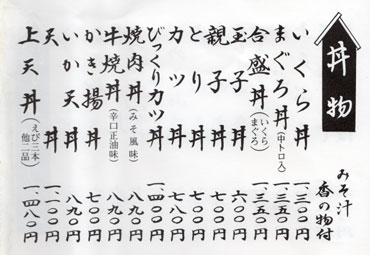 丼物
みそ汁
香の物付
いくら丼 一、三〇〇円
まぐろ丼(中トロ入) 一、三五〇円
合盛丼(いくら まぐろ) 一、三五〇円
玉子丼 六〇〇円
親子丼 七〇〇円
とり丼 七〇〇円
カツ丼 七八〇円
びっくりカツ丼 一、四〇〇円
焼肉丼(みそ風味) 八九〇円
牛焼丼(辛口正油味) 八九〇円
かき揚丼 七〇〇円
いか天丼 八九〇円
天丼 一、一〇〇円
上天丼(えび三本 他二品) 一、四八〇円